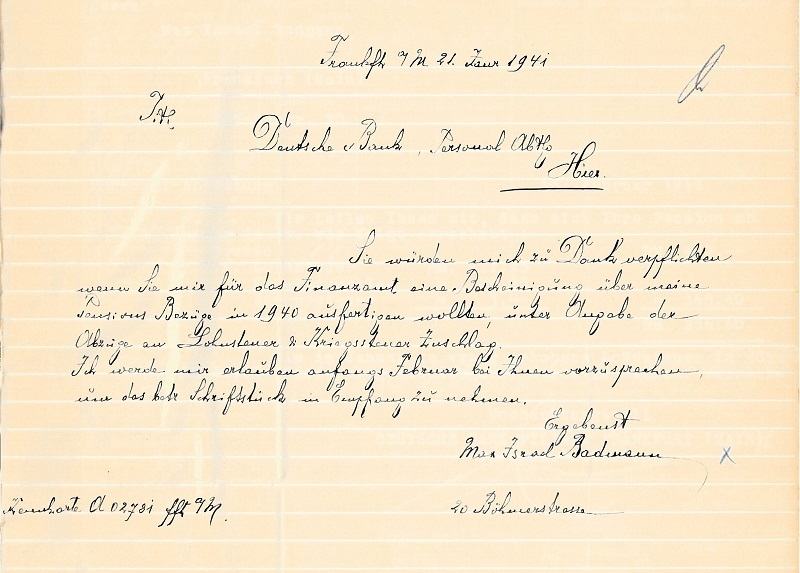 Frankft a/M 21. Jaur 1941
Deutsche Bank, Personal Abtlg
Hier.
Sie würden mich zu Dank verpflichten
wenn Sie mir für das Finanzamt eine Bescheinigung über meine
Pensions Bezüge in 1940 ausfertigen wollten, unter Angabe der
Abzüge an Lohnsteuer & Kriegssteuer Zuschlag.
Ich werde mir erlauben anfangs Februar bei Ihnen vorzusprechen,
um das betr Schriftstück in Empfang zu nehmen.
Ergebenst
Max Israel Badmann
Kennkarte A 02731 fft a/M.
20 Böhmerstrasse